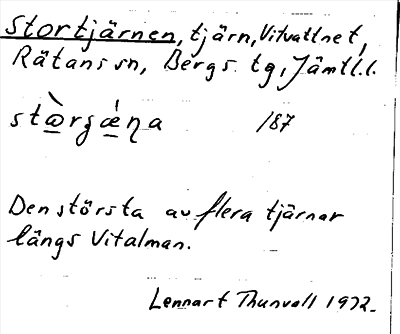 Stortjärnen, tjärn, Vitvattnet,
Rätans sn, Bergs tg, Jämtl. l.
stɷ̀rgǽŋa 187
Den största av flera tjärnar
längs Vitalman.
Lennart Thunvall 1972.